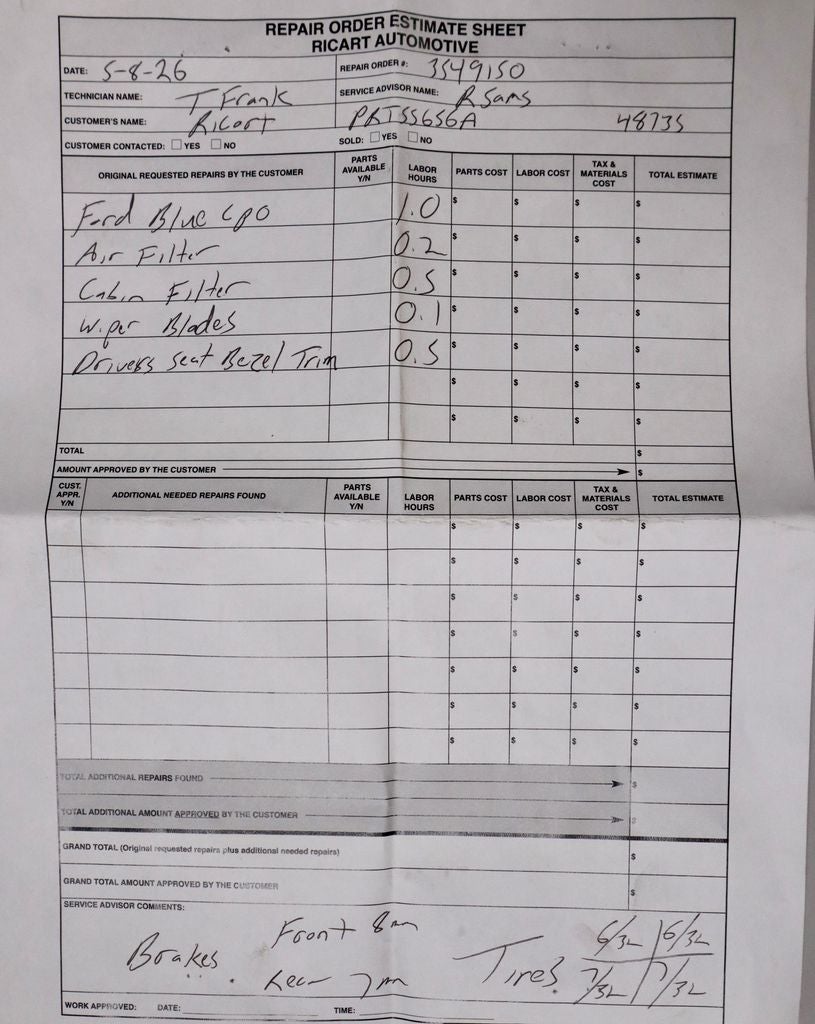 REPAIR ORDER ESTIMATE SHEET
RICART AUTOMOTIVE
DATE: 5-8-26 REPAIR ORDER #: 3549150
TECHNICIAN NAME: T Frank SERVICE ADVISOR NAME: R Sams
CUSTOMER'S NAME: Ricart PRT55656A 48735
CUSTOMER CONTACTED: YES NO SOLD: YES NO
ORIGINAL REQUESTED REPAIRS BY THE CUSTOMER PARTS AVAILABLE Y/N LABOR HOURS PARTS COST LABOR COST TAX & MATERIALS COST TOTAL ESTIMATE
Ford Blue CPO 1.0 $ $ $ $
Air Filter 0.2 $ $ $ $
Cabin Filter 0.5 $ $ $ $
Wiper Blades 0.1 $ $ $ $
Drivers Seat Bezel Trim 0.5 $ $ $ $
$ $ $ $
$ $ $ $
TOTAL $
AMOUNT APPROVED BY THE CUSTOMER $
CUST. APPR. Y/N ADDITIONAL NEEDED REPAIRS FOUND PARTS AVAILABLE Y/N LABOR HOURS PARTS COST LABOR COST TAX & MATERIALS COST TOTAL ESTIMATE
$ $ $ $
$ $ $ $
$ $ $ $
$ $ $ $
$ $ $ $
$ $ $ $
$ $ $ $
TOTAL ADDITIONAL REPAIRS FOUND $
TOTAL ADDITIONAL AMOUNT APPROVED BY THE CUSTOMER $
GRAND TOTAL (Original requested repairs plus additional needed repairs) $
GRAND TOTAL AMOUNT APPROVED BY THE CUSTOMER $
SERVICE ADVISOR COMMENTS:
Brakes Front 8mm Tires 6/32 6/32
Rear 7mm 7/32 7/32
WORK APPROVED: DATE: TIME: